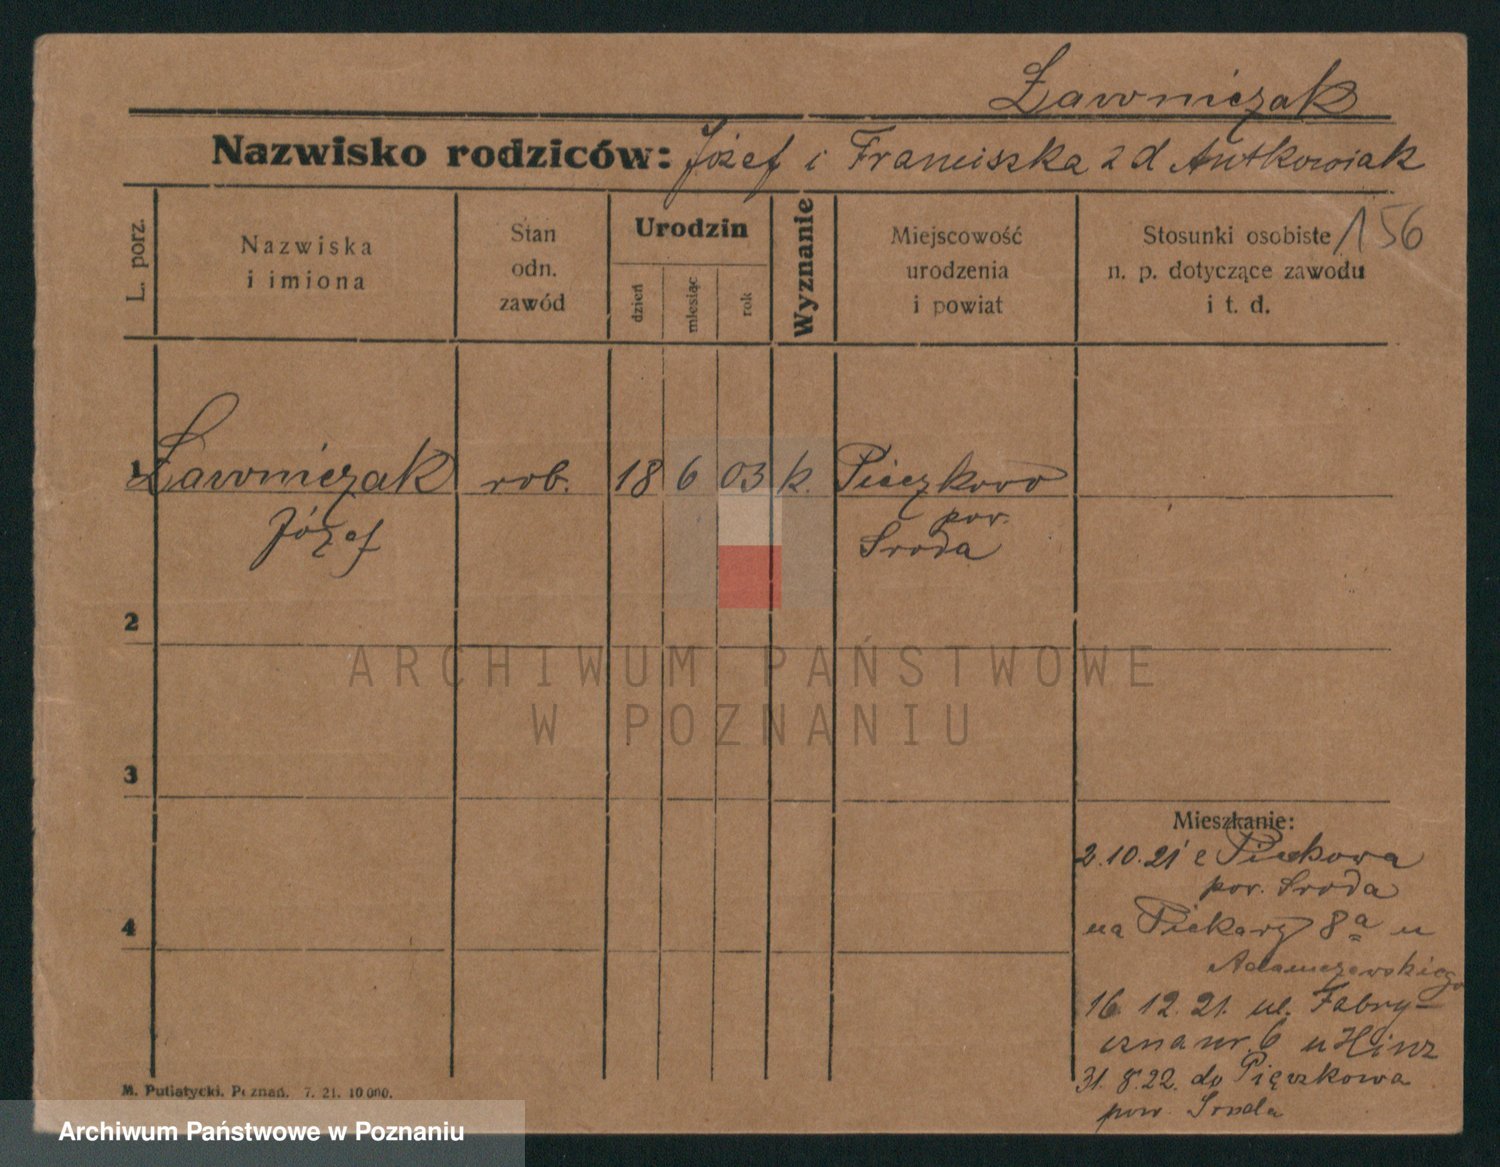 Ławniczak
Nazwisko rodziców: Józef i Franciszka z d Antkowiak
156
L. porz.
Nazwiska
i imiona
Stan
odn.
zawód
Urodzin
dzień
miesiąc
rok
Wyznanie
Miejscowość
urodzenia
i powiat
Stosunki osobiste
n. p. dotyczące zawodu
i t. d.
1 Ławniczak rob. 18 6 03 k. Pięczkowo
Józef pow.
Sroda
2
3
4
Mieszkanie:
2.10.21 z
pow. Sroda
na Piekary 8a u
Adamczewskiego
16. 12. 21. ul. Fabry-
czna nr. 6 u Hinz
31. 8. 22. do Pięczkowa
pow. Sroda
M. Putiatycki, Poznań. 7. 21. 10 000.
ARCHIWUM PAŃSTWOWE
W POZNANIU
Archiwum Państwowe w Poznaniu